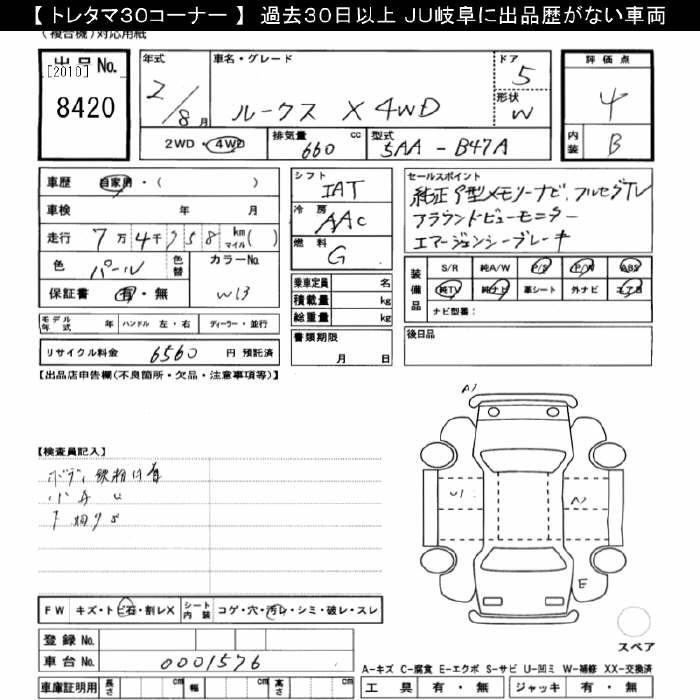 【 トレタマ30コーナー 】 過去30日以上 JU岐阜に出品歴がない車両
(複合機)対応用紙
出品No.
[2010]
8420
年式
2/8月
車名・グレード
ルークス X 4WD
ドア
5
形状
W
評価点
4
内装
B
2WD・4WD
排気量 660 cc
型式 5AA - B47A
車歴 自家用・( )
車検 年 月
走行 7万4千958 km マイル( )
色 パール
色替
カラーNo.
W13
保証書 有・無
シフト IAT
冷房 AAC
燃料 G
セールスポイント
純正9型メモリーナビ.フルセグTV
アラウンドビューモニター
エマージェンシーブレーキ
乗車定員 名
積載量 kg
総重量 kg
装備品
S/R 純A/W P/S P/W ABS
純TV 純ナビ 革シート 外ナビ エアB
ナビ型番:
モデル年式 年 ハンドル 左・右 ディーラー・並行
リサイクル料金 6560 円 預託済
書類期限
月 日
後日品
【出品店申告欄(不良箇所・欠品・注意事項等)】
【検査員記入】
A1
U1
E
FW キズ・トビ石・割レX
シート内装 コゲ・穴・汚レ・シミ・破レ・スレ
スペア
登録No.
車台No. 0001576
A-キズ C-腐食 E-エクボ S-サビ U-凹ミ W-補修 XX-交換済
車庫証明用 長さ cm 幅 cm 高さ cm
工具 有・無 ジャッキ 有・無